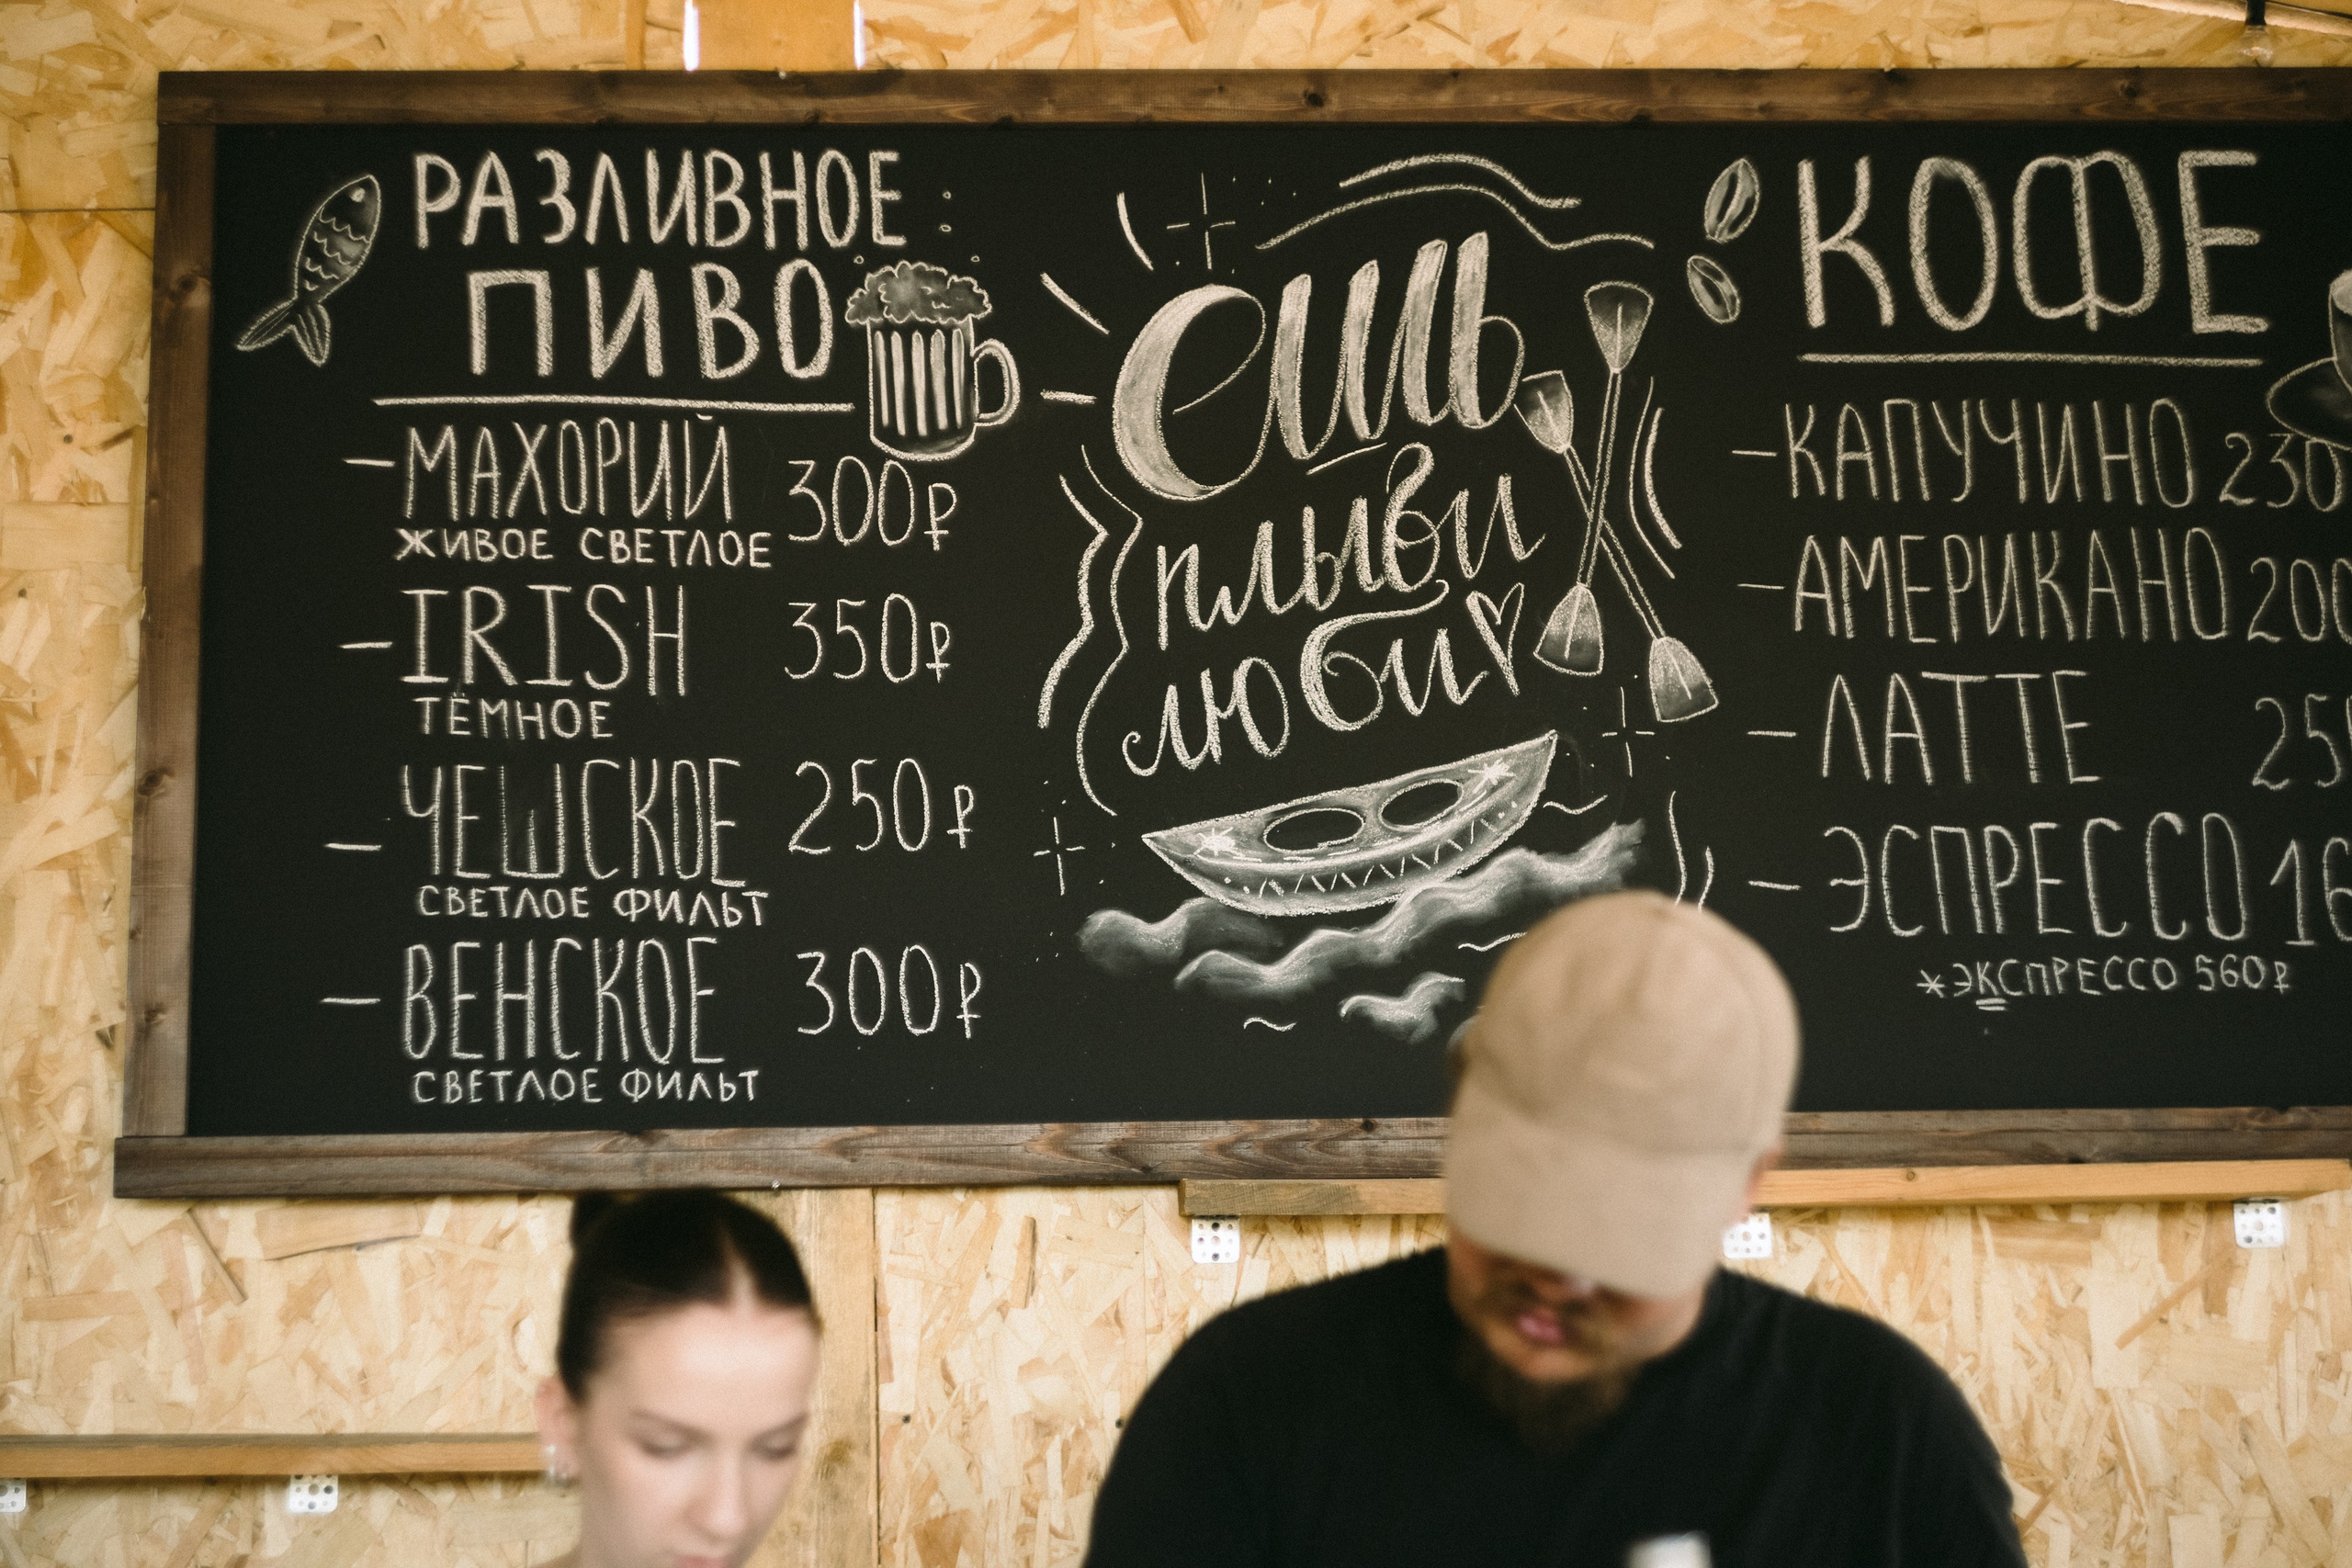 РАЗЛИВНОЕ:
ПИВО
– МАХОРИЙ 300₽
ЖИВОЕ СВЕТЛОЕ
– IRISH 350₽
ТЁМНОЕ
– ЧЕШСКОЕ 250₽
СВЕТЛОЕ ФИЛЬТ
– ВЕНСКОЕ 300₽
СВЕТЛОЕ ФИЛЬТ
ешь
плыви
люби
КОФЕ
– КАПУЧИНО 230
– АМЕРИКАНО 200
– ЛАТТЕ
– ЭСПРЕССО
*ЭКСПРЕССО 560₽